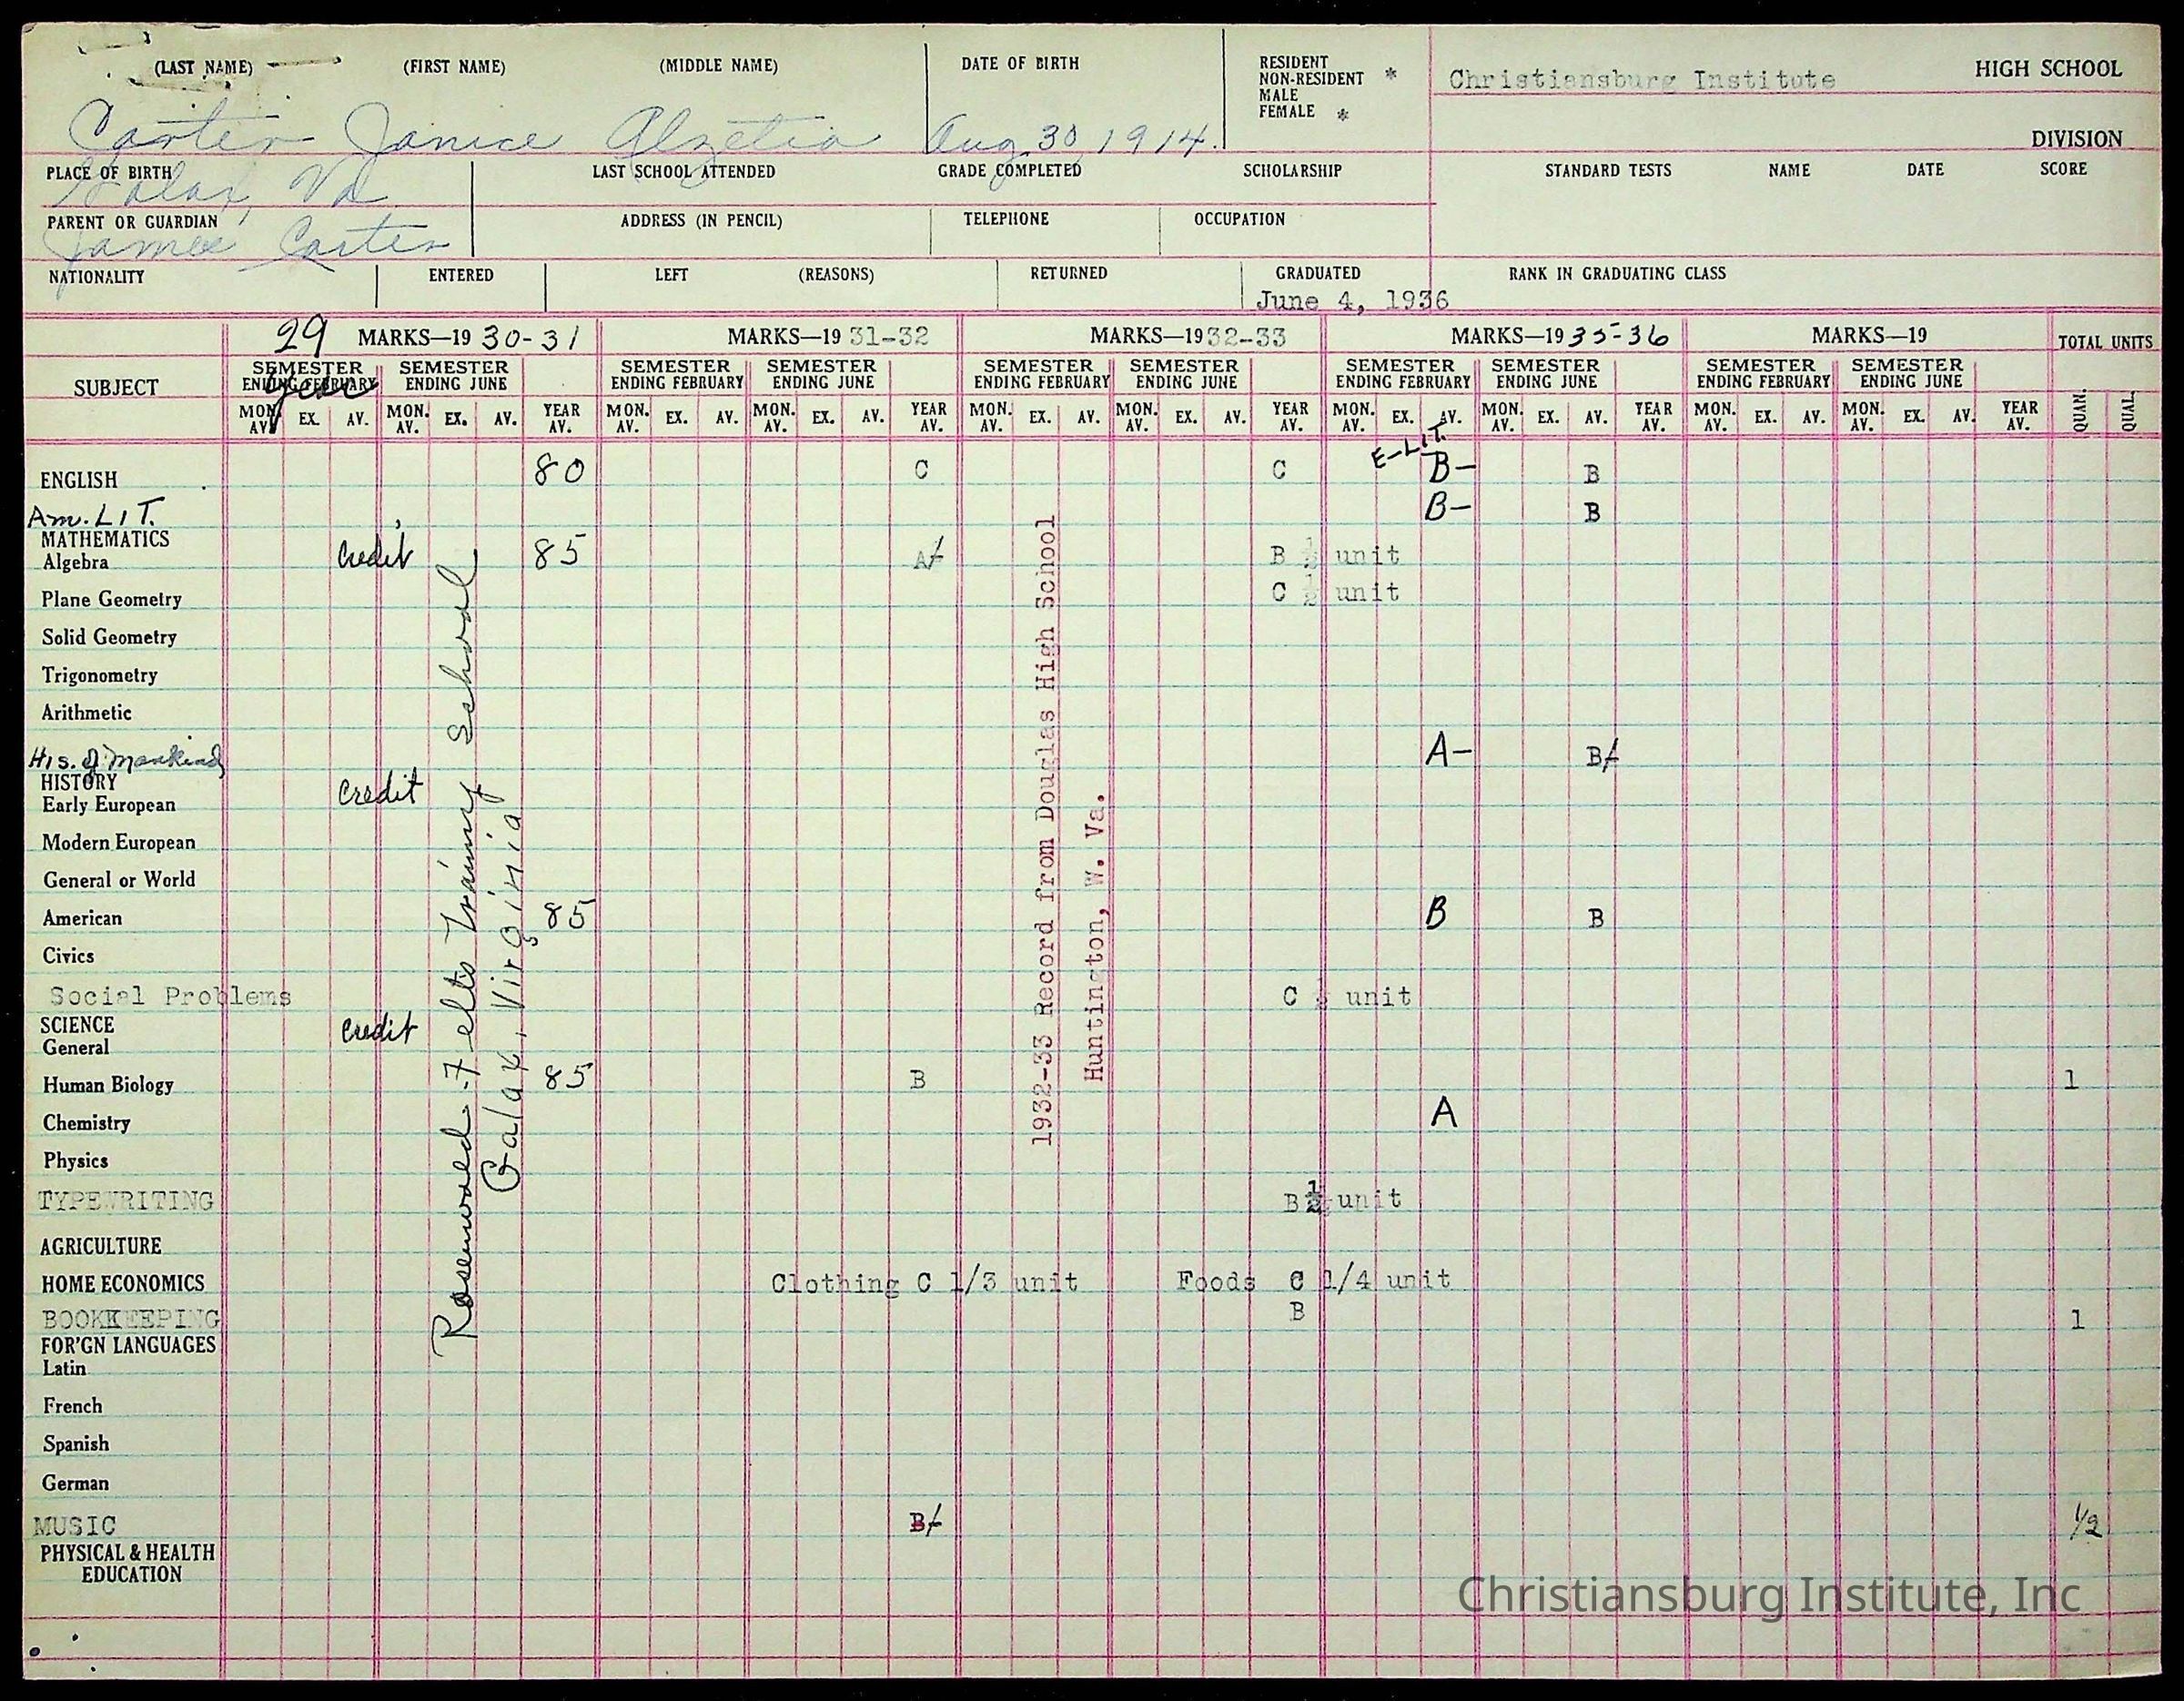 (LAST NAME) (FIRST NAME) (MIDDLE NAME) DATE OF BIRTH
RESIDENT
NON-RESIDENT *
MALE
FEMALE *
Christiansburg Institute HIGH SCHOOL
Carter Janice Alzetia Aug 30, 1914.
DIVISION
PLACE OF BIRTH LAST SCHOOL ATTENDED GRADE COMPLETED SCHOLARSHIP STANDARD TESTS NAME DATE SCORE
Galax, Va
PARENT OR GUARDIAN ADDRESS (IN PENCIL) TELEPHONE OCCUPATION
James Carter
NATIONALITY ENTERED LEFT (REASONS) RETURNED GRADUATED RANK IN GRADUATING CLASS
June 4, 1936
29 MARKS—19 30-31 MARKS—19 31-32 MARKS—19 32-33 MARKS—19 35-36 MARKS—19 TOTAL UNITS
SUBJECT
SEMESTER SEMESTER SEMESTER SEMESTER SEMESTER SEMESTER SEMESTER SEMESTER SEMESTER SEMESTER
ENDING FEBRUARY ENDING JUNE ENDING FEBRUARY ENDING JUNE ENDING FEBRUARY ENDING JUNE ENDING FEBRUARY ENDING JUNE ENDING FEBRUARY ENDING JUNE
year
MON. AV. EX. AV. MON. AV. EX. AV. YEAR AV. MON. AV. EX. AV. MON. AV. EX. AV. YEAR AV. MON. AV. EX. AV. MON. AV. EX. AV. YEAR AV. MON. AV. EX. AV. MON. AV. EX. AV. YEAR AV. MON. AV. EX. AV. MON. AV. EX. AV. YEAR AV. QUAN. QUAL.
E-LIT.
ENGLISH 80 C C B- B
Am. LIT. B- B
MATHEMATICS
Algebra credit 85 A/ B 1/2 unit
Plane Geometry C 1/2 unit
Solid Geometry
Trigonometry
Arithmetic
His. of Mankind A- B/
HISTORY
Early European credit
Modern European
General or World
American 85 B B
Civics
Social Problems C unit
SCIENCE
General credit
Human Biology 85 B 1
Chemistry A
Physics
TYPEWRITING B 1/2 unit
AGRICULTURE
HOME ECONOMICS Clothing C 1/3 unit Foods C 1/4 unit
BOOKKEEPING B 1
FOR'GN LANGUAGES
Latin
French
Spanish
German
MUSIC B/ 1/2
PHYSICAL & HEALTH
EDUCATION
Rosenwald-Felts Training School
Galax, Virginia
1932-33 Record from Douglas High School
Huntington, W. Va.
Christiansburg Institute, Inc